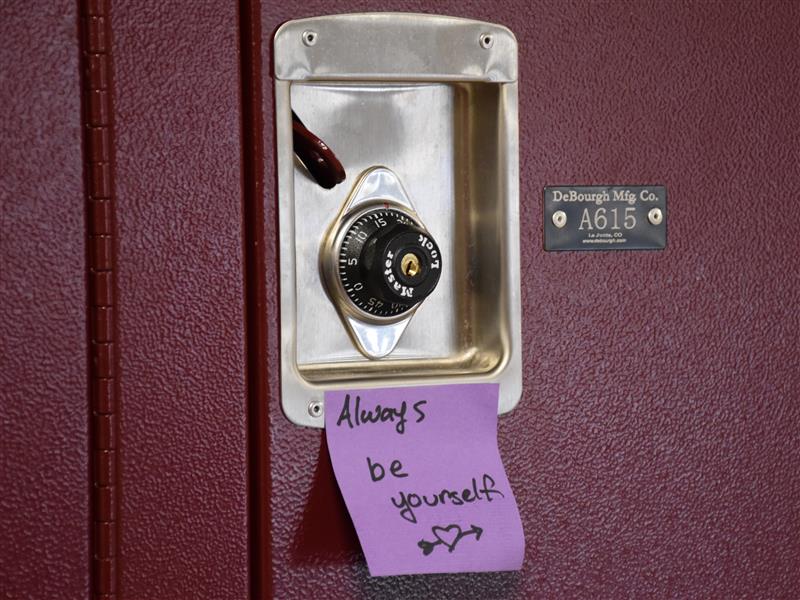 DeBourgh Mfg. Co.
A615
La Junta, CO
www.debourgh.com
15
10
5
0
45
Master
Lock
Always
be
yourself